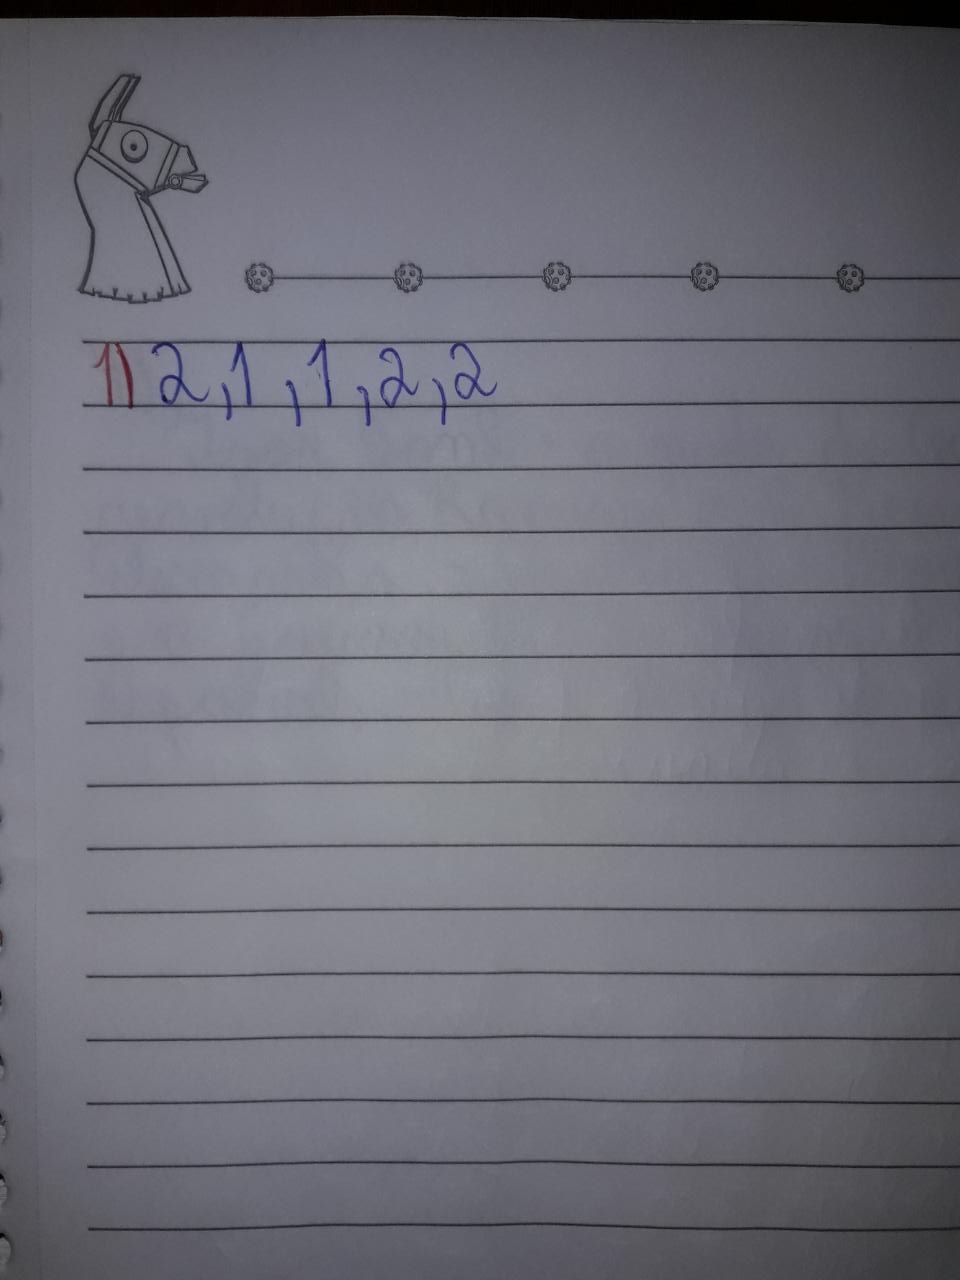 1) 2,1,1,2,2